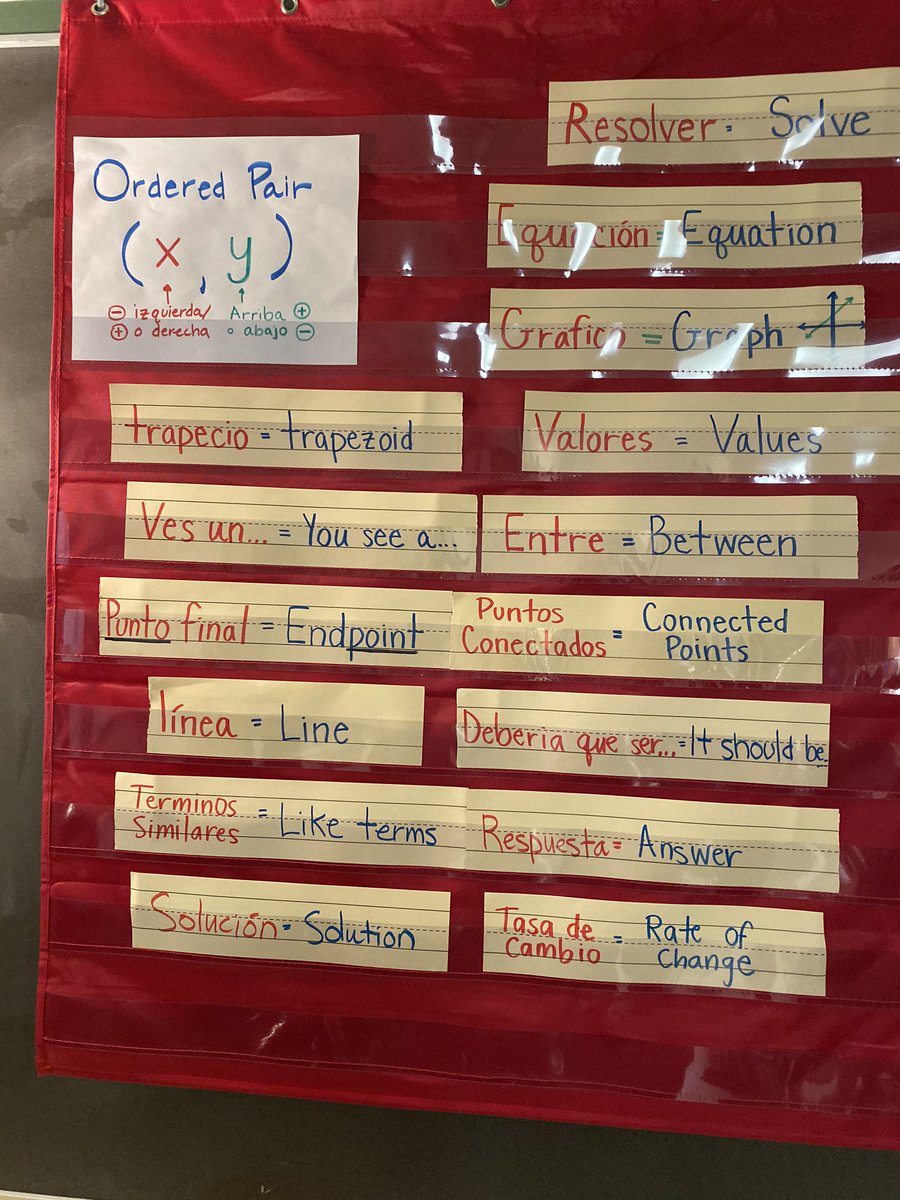 Resolver = Solve
Ordered Pair
(x, y)
⊖ izquierda/ Arriba ⊕
⊕ o derecha o abajo ⊖
Equación = Equation
Grafico = Graph
trapecio = trapezoid
Valores = Values
Ves un... = You see a...
Entre = Between
Punto final = Endpoint
Puntos
Conectados = Connected
Points
línea = Line
Deberia que ser... = It should be..
Terminos
Similares = Like terms
Respuesta = Answer
Solución = Solution
Tasa de
Cambio = Rate of
Change